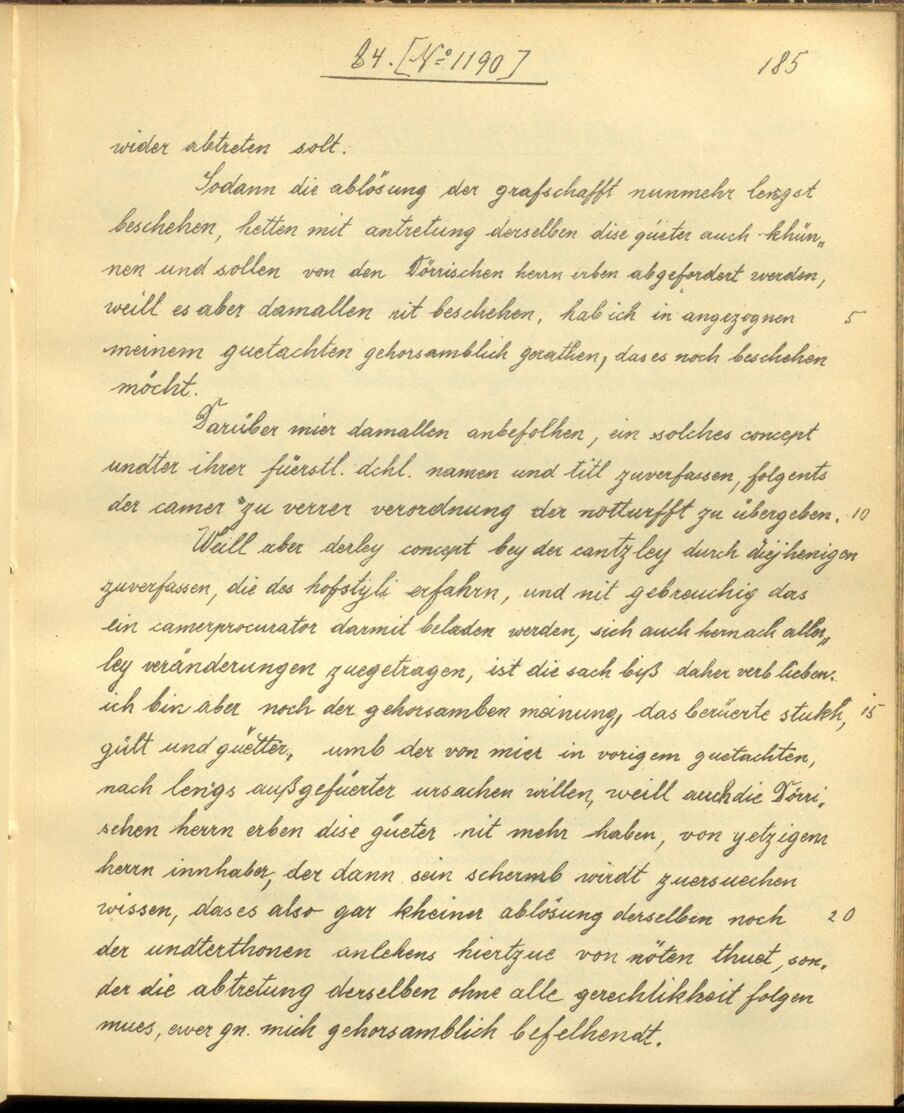 84. [№ 1190]
185
wider abtreten solt.
Sodann die ablösung der grafschafft nunmehr lengst
beschehen, hetten mit antretung derselben dise güeter auch khün„
nen und sollen von den Dörrischen herrn erben abgefordert werden,
weill es aber damallen nit beschehen, hab ich in angezognen 5
meinem guetachten gehorsamblich gerathen, das es noch beschehen
möcht.
Darüber mier damallen anbefolhen, ein solches concept
undter ihrer füerstl. dchl. namen und titl zuverfassen, folgents
der camer zu verrer verordnung der notturfft zu übergeben. 10
Weill aber derley concept bey der cantzley durch diejhenigen
zuverfassen, die des hofstyli erfahrn, und nit gebreuchig das
ein camerprocurator darmit beladen werden, sich auch hernach aller„
ley veränderungen zuegetragen, ist die sach biß daher verblieben.
ich bin aber noch der gehorsamben meinung, das berüerte stukh, 15
gült und güetter, umb der von mier in vorigem guetachten,
nach lengs außgefüerter ursachen willen, weill auch die Dörri„
schen herrn erben dise güeter nit mehr haben, von yetzigem
herrn innhaber, der dann sein schermb wirdt zuersuechen
wissen, das es also gar kheiner ablösung derselben noch 20
der undterthonen anlehens hiertzue von nöten thuet, son„
der die abtretung derselben ohne alle gerechtikheit folgen
mues, ewer gn. mich gehorsamblich befelhendt.